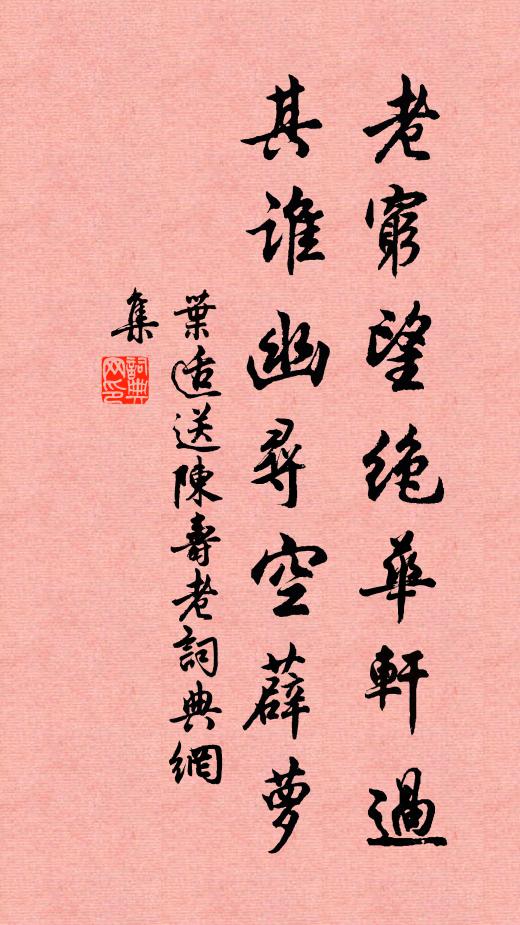 老窮望絶華軒過
其誰幽尋空薜蘿
葉适送陳壽老詞典網
集
詞典網印